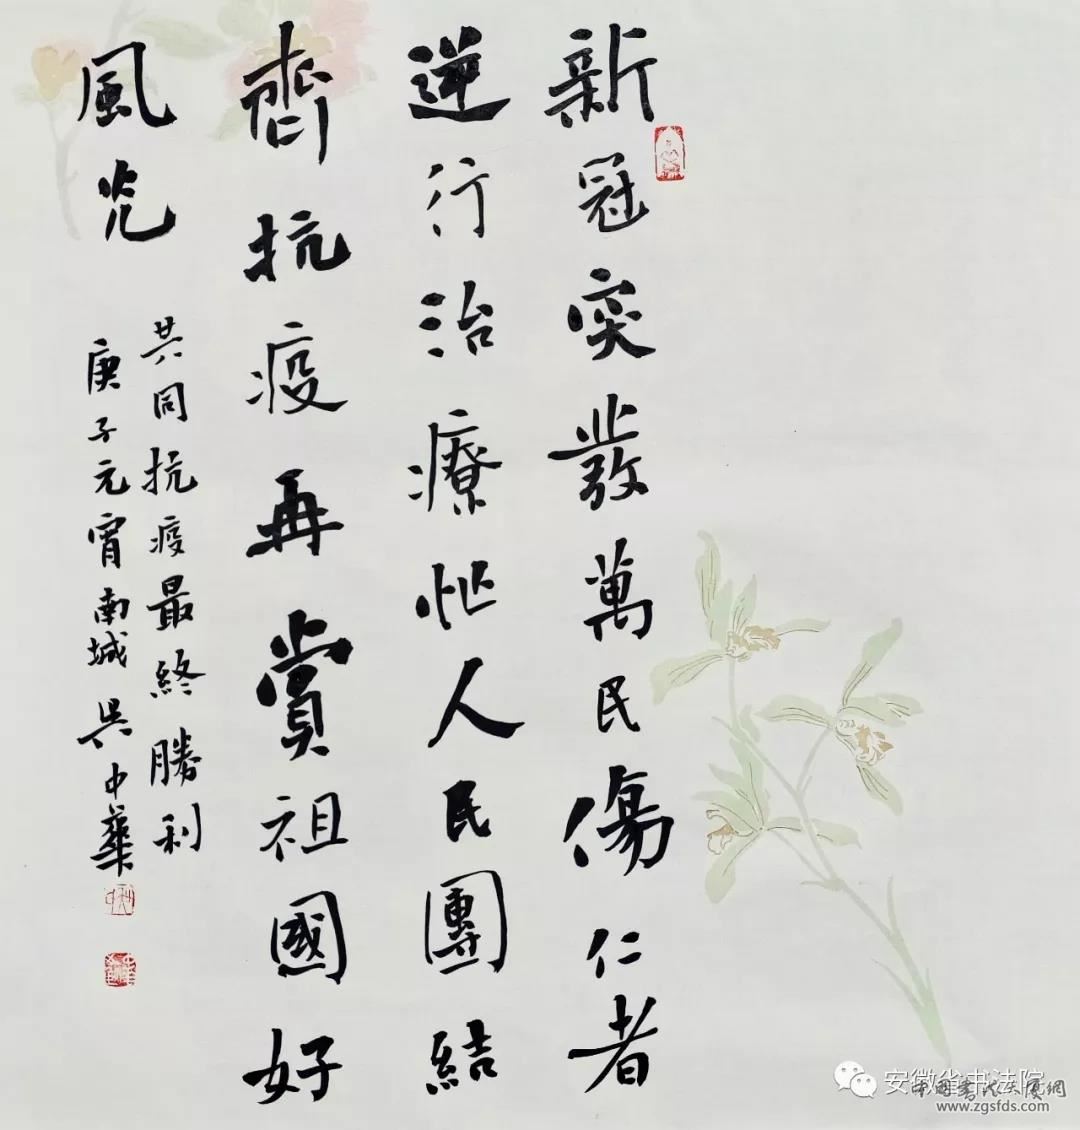 新冠突發萬民傷仁者
逆行治療忙人民團結
齊抗疫再賞祖國好
風光
共同抗疫最終勝利
庚子元宵南城吳中華
安徽省书法院
中国書法大厦網
www.zgsfds.com